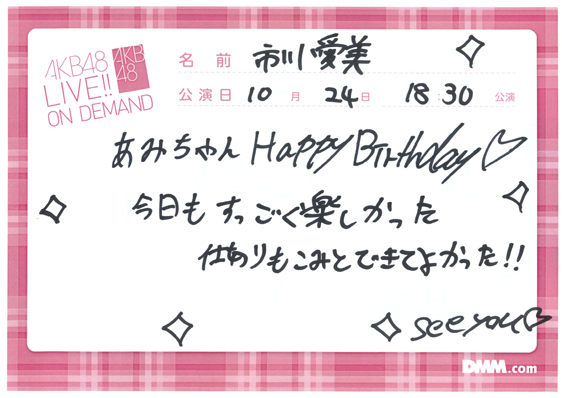 AKB48
LIVE!!
ON DEMAND
AKB
48
名前 市川愛美
公演日 10月 24日 18:30 公演
あみちゃん Happy Birthday♡
今日も すっごく楽しかった
仕ありもこみとできてよかった!!
see you♡
DMM.com